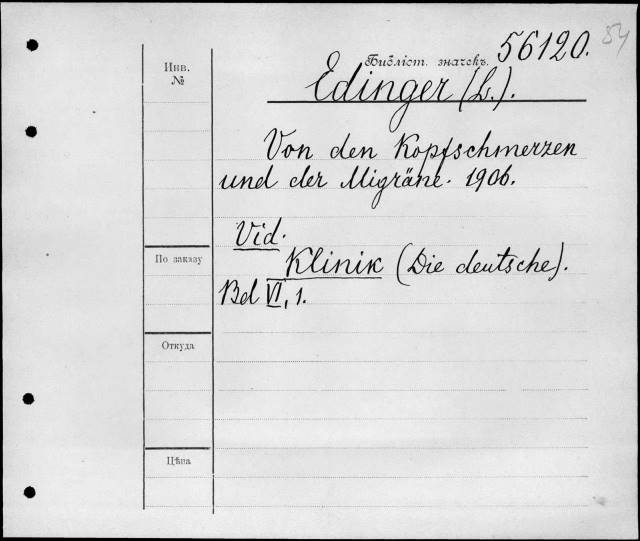 54
Библіот. значекъ. 56120.
Инв.
№
Edinger (L.).
Von den Kopfschmerzen
und der Migräne. 1906.
Vid.
По заказу
Klinik (Die deutsche).
Bd VI, 1.
Откуда
Цѣна